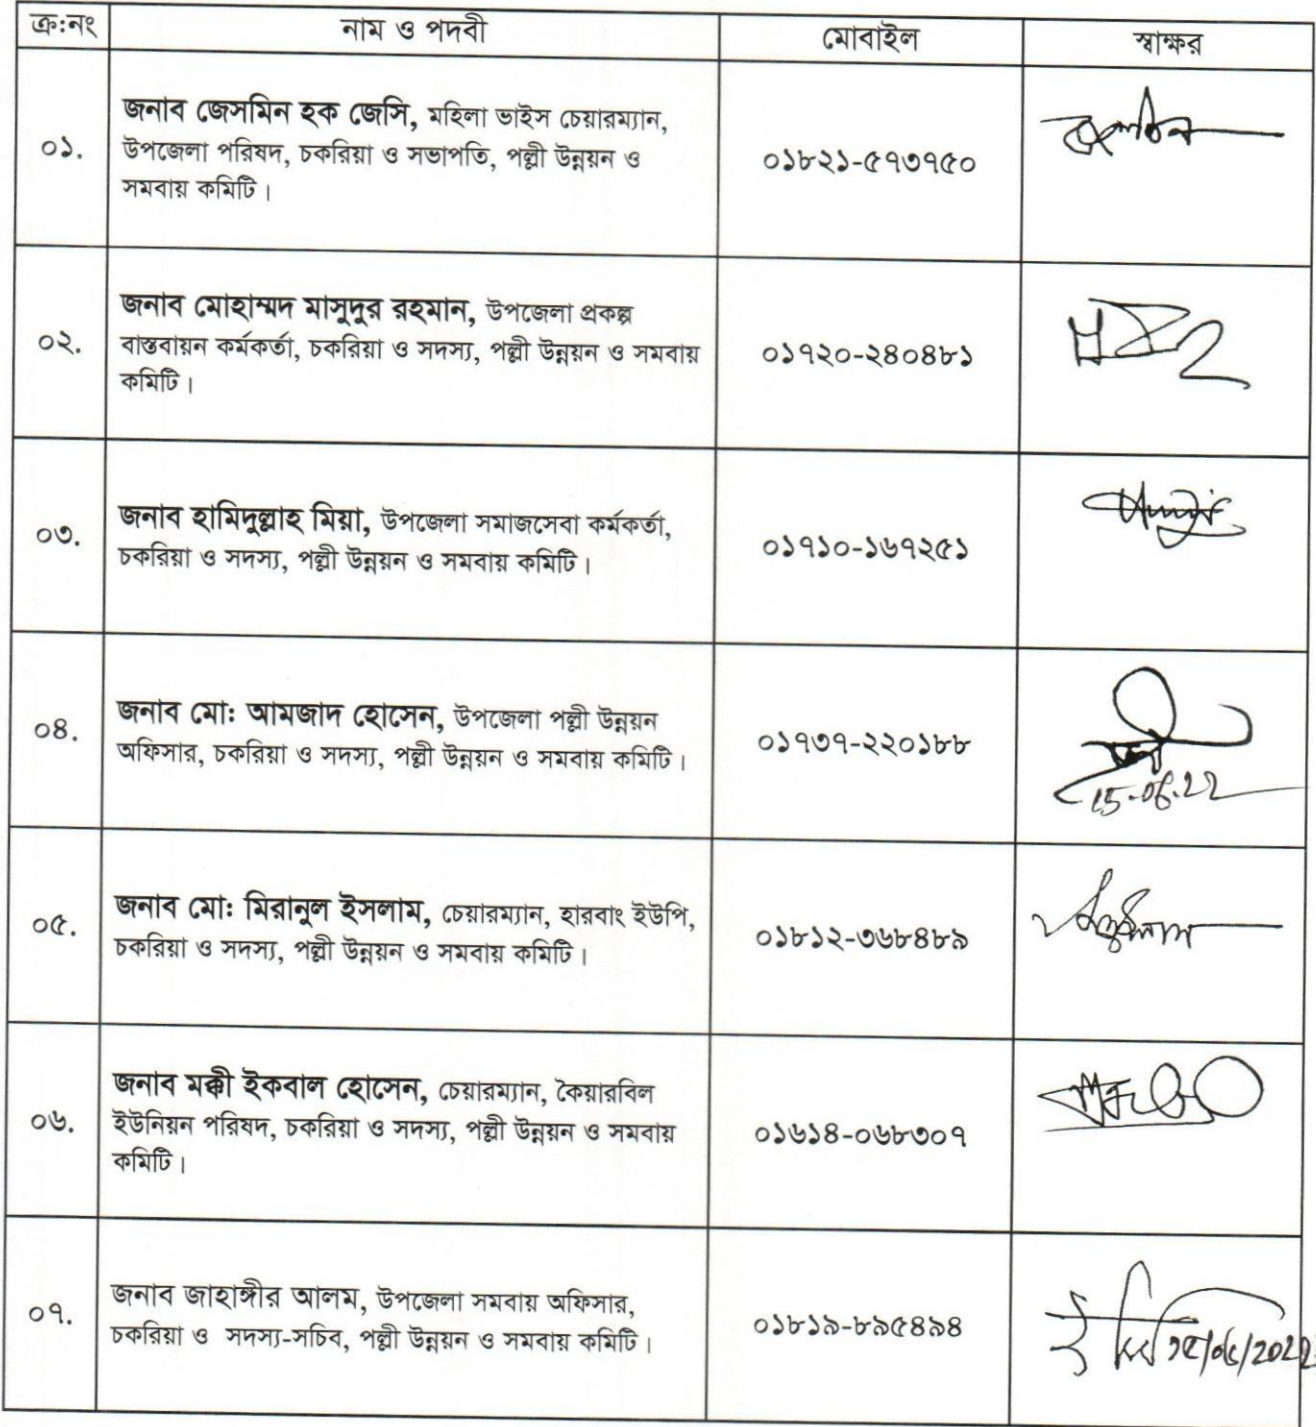 ক্র:নং নাম ও পদবী মোবাইল স্বাক্ষর
জনাব জেসমিন হক জেসি, মহিলা ভাইস চেয়ারম্যান,
০১. উপজেলা পরিষদ, চকরিয়া ও সভাপতি, পল্লী উন্নয়ন ও ০১৮২১-৫৭৩৭৫০
সমবায় কমিটি।
জনাব মোহাম্মদ মাসুদুর রহমান, উপজেলা প্রকল্প
০২. বাস্তবায়ন কর্মকর্তা, চকরিয়া ও সদস্য, পল্লী উন্নয়ন ও সমবায় ০১৭২০-২৪০৪৮১
কমিটি।
জনাব হামিদুল্লাহ মিয়া, উপজেলা সমাজসেবা কর্মকর্তা,
০৩. চকরিয়া ও সদস্য, পল্লী উন্নয়ন ও সমবায় কমিটি। ০১৭১০-১৬৭২৫১
জনাব মো: আমজাদ হোসেন, উপজেলা পল্লী উন্নয়ন
০৪. অফিসার, চকরিয়া ও সদস্য, পল্লী উন্নয়ন ও সমবায় কমিটি। ০১৭৩৭-২২০১৮৮
15-06-22
জনাব মো: মিরানুল ইসলাম, চেয়ারম্যান, হারবাং ইউপি,
০৫. চকরিয়া ও সদস্য, পল্লী উন্নয়ন ও সমবায় কমিটি। ০১৮১২-৩৬৮৪৮৯
জনাব মক্কী ইকবাল হোসেন, চেয়ারম্যান, কৈয়ারবিল
০৬. ইউনিয়ন পরিষদ, চকরিয়া ও সদস্য, পল্লী উন্নয়ন ও সমবায় ০১৬১৪-০৬৮৩০৭
কমিটি।
জনাব জাহাঙ্গীর আলম, উপজেলা সমবায় অফিসার,
০৭. চকরিয়া ও সদস্য-সচিব, পল্লী উন্নয়ন ও সমবায় কমিটি। ০১৮১৯-৮৯৫৪৯৪